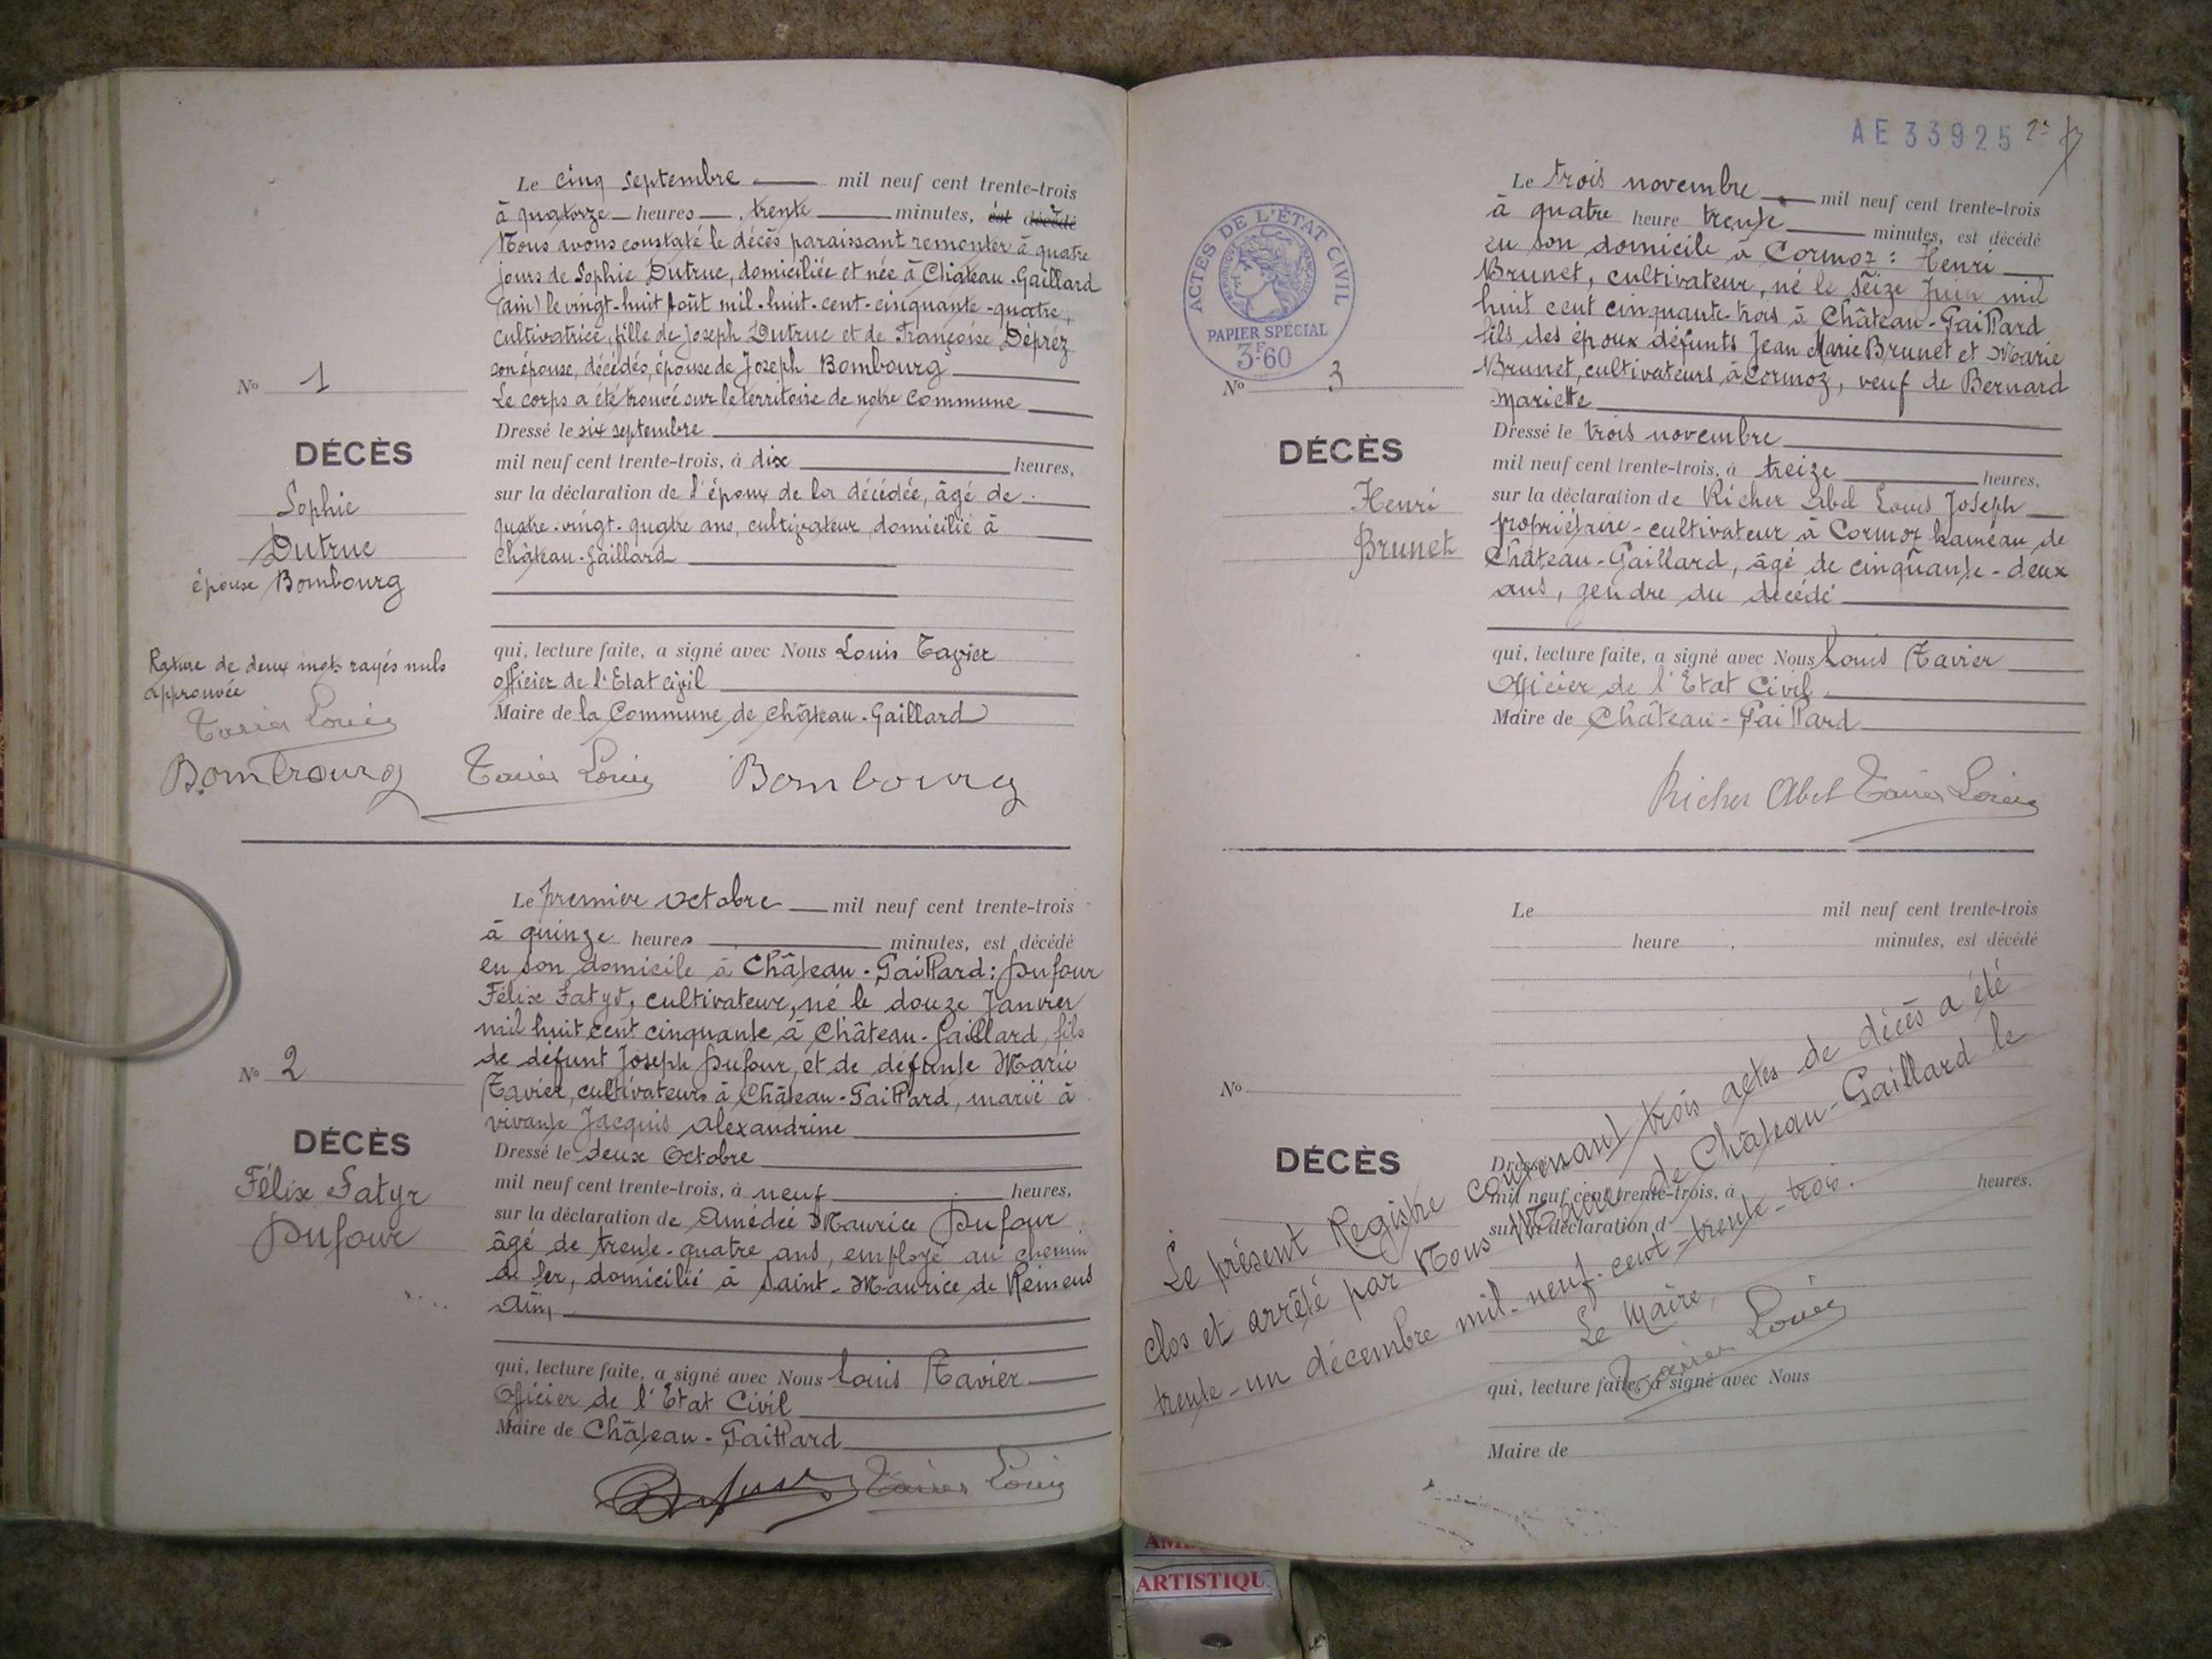 Le cinq septembre mil neuf cent trente-trois
à quatorze heures, trente minutes, est décédé
Nous avons constaté le décès paraissant remonter à quatre
jours de Sophie Dutruc, domiciliée et née à Château-Gaillard
(ain) le vingt-huit août mil-huit-cent-cinquante-quatre,
cultivatrice, fille de Joseph Dutruc et de Françoise Dépréz
son épouse, décédés, épouse de Joseph Bombourg
Le corps a été trouvé sur le territoire de notre Commune
Dressé le six septembre
mil neuf cent trente-trois, à dix heures,
sur la déclaration de l'époux de la décédée, âgé de
quatre-vingt-quatre ans, cultivateur domicilié à
Château-Gaillard
qui, lecture faite, a signé avec Nous Louis Tavier
officier de l'Etat civil
Maire de la Commune de Château-Gaillard
No 1
DÉCÈS
Sophie
Dutruc
épouse Bombourg
Rature de deux mots rayés nuls
approuvée
Tavier Louis
Bombourg Tavier Louis Bombourg
Le premier octobre mil neuf cent trente-trois
à quinze heures minutes, est décédé
en son domicile à Château-Gaillard: Dufour
Félix Satyr, cultivateur, né le douze Janvier
mil huit cent cinquante à Château-Gaillard, fils
de défunt Joseph Dufour, et de défunte Marie
Tavier, cultivateurs à Château-Gaillard, marié à
vivante Jacquis Alexandrine
Dressé le deux Octobre
mil neuf cent trente-trois, à neuf heures,
sur la déclaration de Amédée Maurice Dufour
âgé de trente-quatre ans, employé au chemin
de fer, domicilié à Saint-Maurice de Rémens
Ain,
qui, lecture faite, a signé avec Nous Louis Tavier
Officier de l'Etat Civil
Maire de Château-Gaillard
No 2
DÉCÈS
Félix Satyr
Dufour
Dufour Tavier Louis
AE 33925
ACTES DE L'ÉTAT CIVIL
RÉPUBLIQUE FRANÇAISE
PAPIER SPÉCIAL
3F60
Le trois novembre mil neuf cent trente-trois
à quatre heure trente minutes, est décédé
en son domicile à Cormoz: Henri
Brunet, cultivateur, né le seize Juin mil
huit cent cinquante-trois à Château-Gaillard
fils des époux défunts Jean Marie Brunet et Marie
Brunet, cultivateurs à Cormoz, veuf de Bernard
Mariette
Dressé le trois novembre
mil neuf cent trente-trois, à treize heures,
sur la déclaration de Richer Abel Louis Joseph
propriétaire-cultivateur à Cormoz hameau de
Château-Gaillard, âgé de cinquante-deux
ans, gendre du décédé
qui, lecture faite, a signé avec Nous Louis Tavier
Officier de l'Etat Civil
Maire de Château-Gaillard
No 3
DÉCÈS
Henri
Brunet
Richer Abel Tavier Louis
Le mil neuf cent trente-trois
heure , minutes, est décédé
No
DÉCÈS
Dressé
mil neuf cent trente-trois, à heures,
sur la déclaration d
qui, lecture faite, a signé avec Nous
Maire de
Le présent Registre contenant trois actes de décès a été
clos et arrêté par Nous Maire de Château-Gaillard le
trente-un décembre mil-neuf-cent-trente-trois.
Le Maire,
Tavier Louis
ARTISTIQU